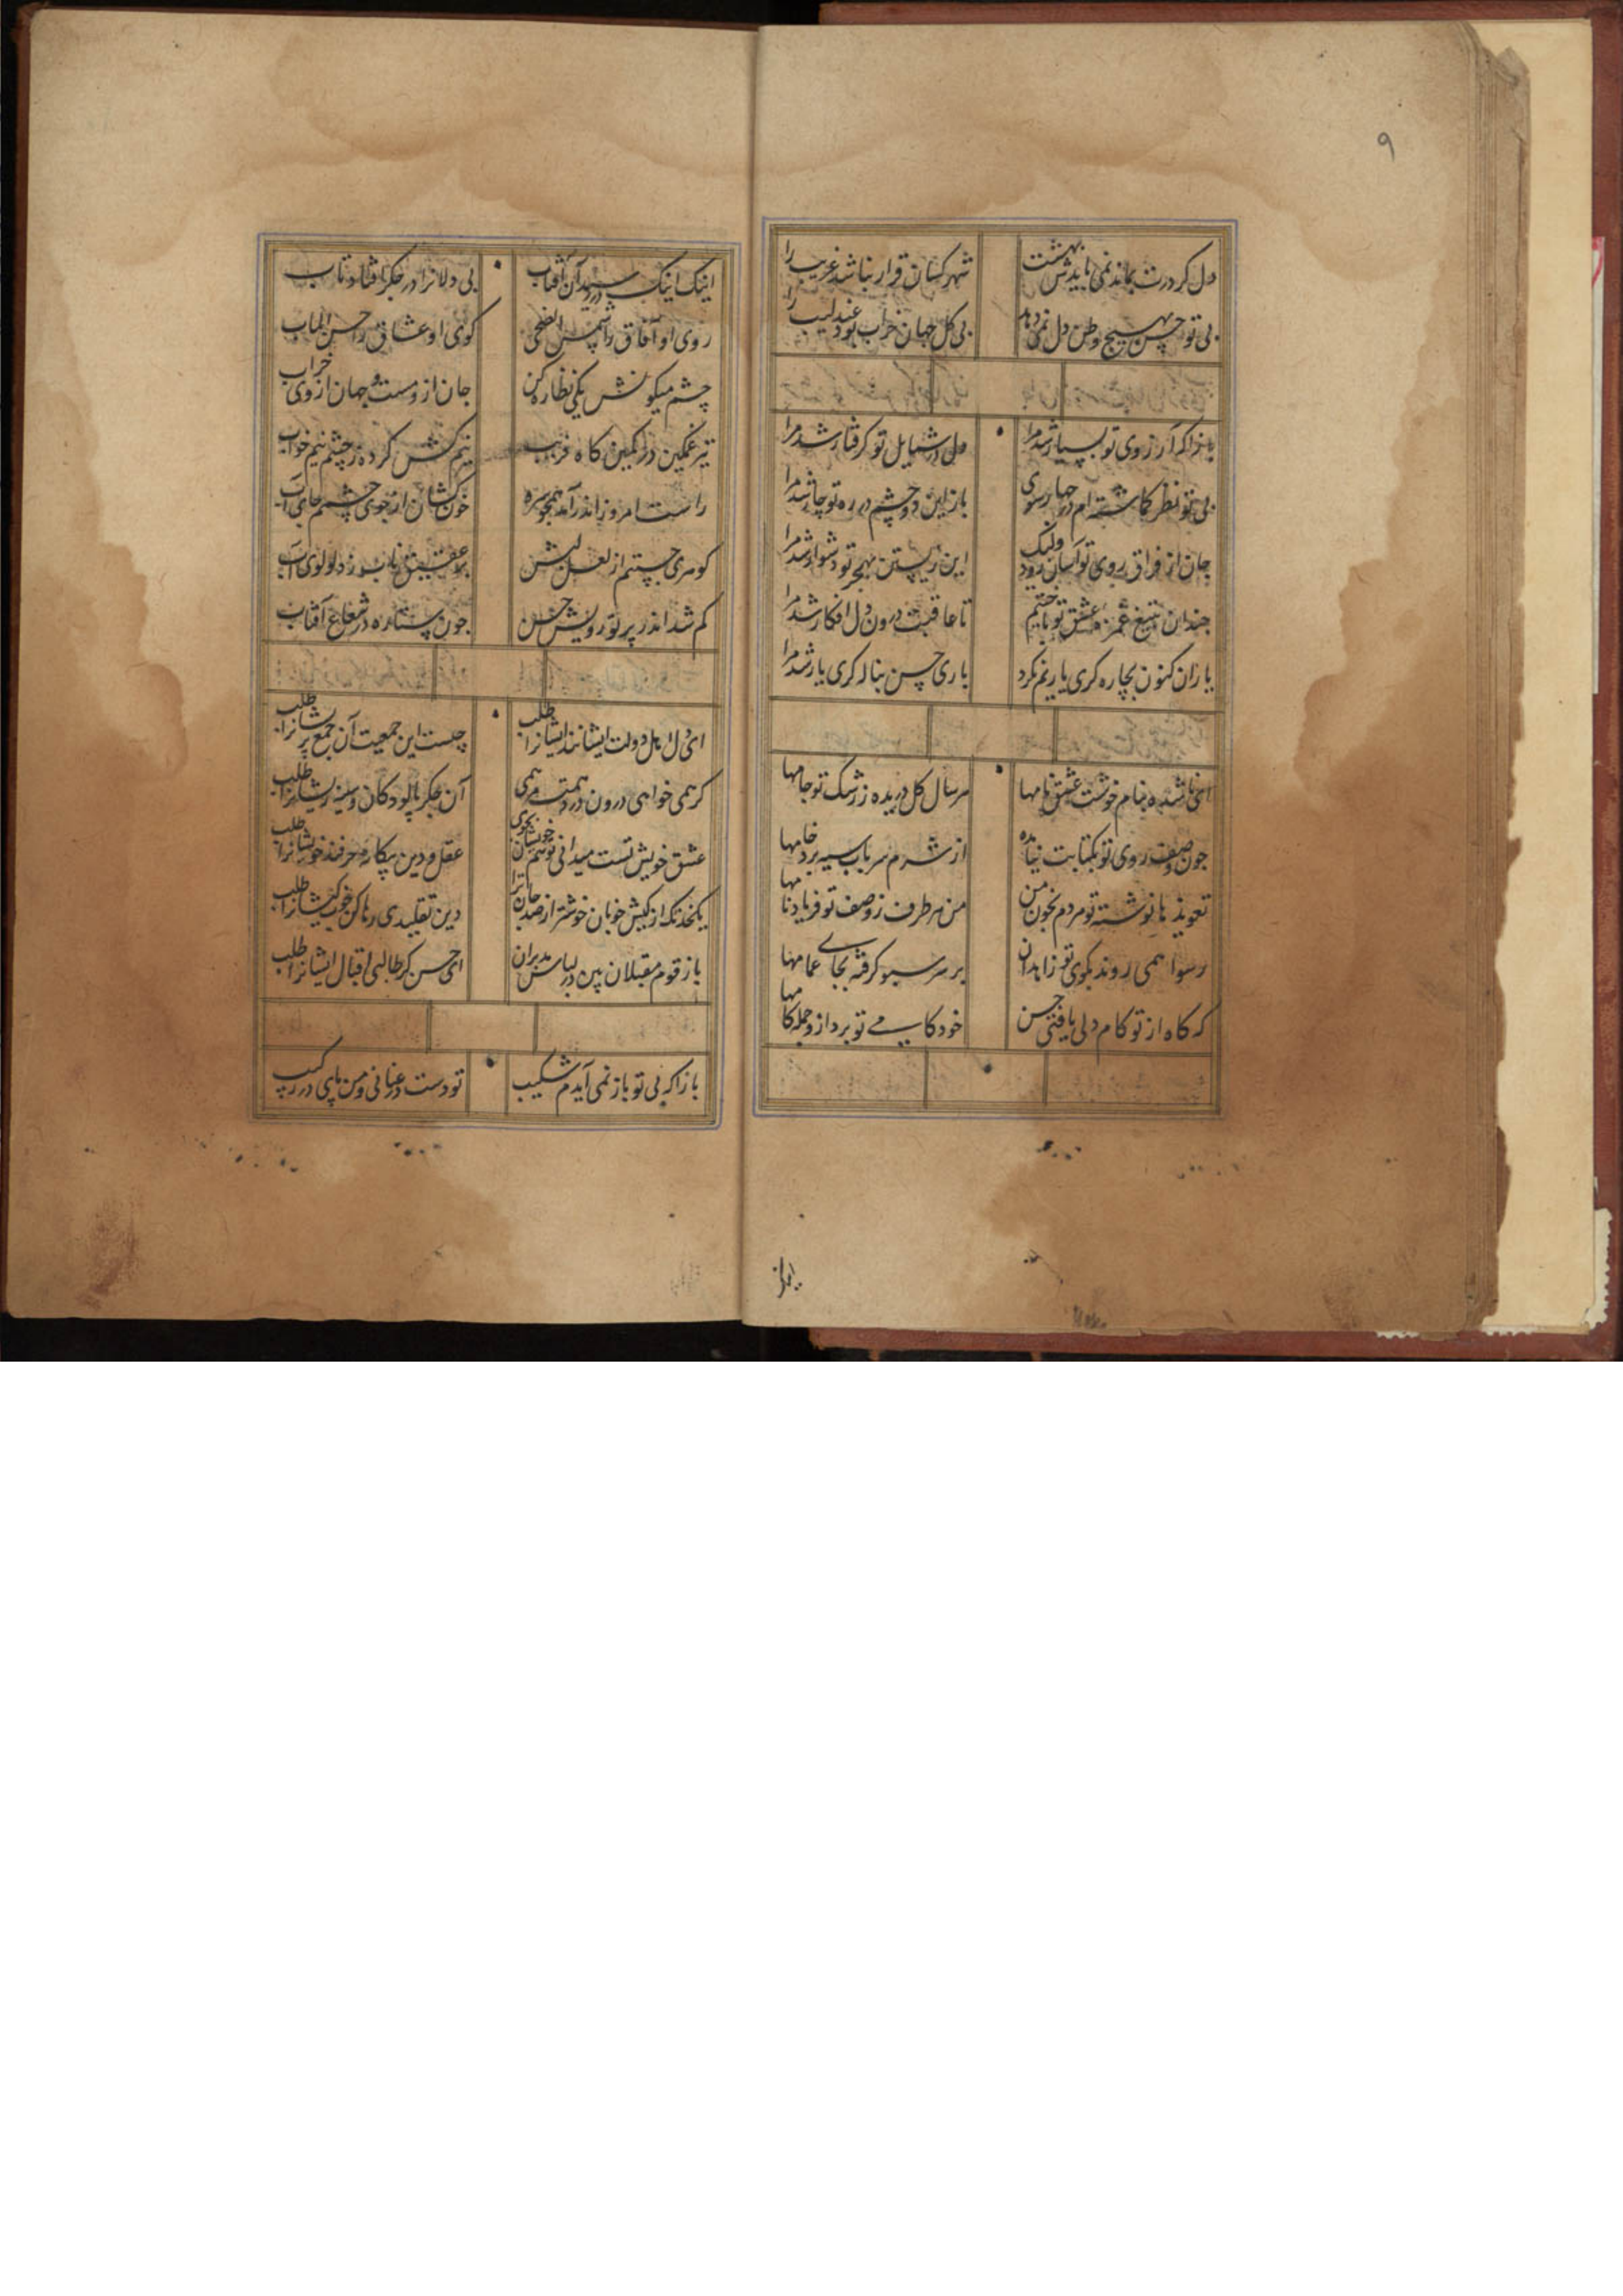 ۹
دل کز درت بماند نمی بایدش بهشت شهر کسان قرار نباشد غریب را
بی تو حسن بهیچ وطن دل نمی دهد بی کل جهان خراب بود عندلیب را
بازا که آرزوی تو بسیار شد مرا دل در شمایل تو کرفتار شد مرا
بی تو نظر کماشته ام در چهار سوی باز این دو چشم در ره تو چار شد مرا
جان از فراق روی تو آسان رود ولیک این زیستن بهجر تو دشوار شد مرا
چندان بتیغ غمزه و عشق تو باختیم تا عاقبت درون دل افکار شد مرا
یاران کنون بچاره کری یاریم نکرد باری حسن بناله کری یار شد مرا
ای تا شده بنام خوشت عشق نامها هر سال کل دریده ز رشک تو جامها
چون وصف روی تو بکتابت نیامده از شرم سر بآب سیه برد خامها
تعویذ ها نوشته تو مردم بخون من من هر طرف ز وصف تو فریاد نامها
رسوا همی روند بکوی تو زاهدان بر سر سبو کرفته بجای عمامها
که کاه از تو کام دلی یافتی حسن خود کامیی تو برد از و جمله کامها
اینک اینک در رسید آن آفتاب بی دلانرا در جکر افتاد تاب
روی او آفاق را شمس الضحی کوی او عشاق را حسن المآب
چشم میکونش یکی نظاره کن جان ازو مست و جهان از وی خراب
تیر غمکین در کمین کاه فریب نیم کش کرده ز چشم نیم خواب
راست امروز اندر آمد همچو سرو خون کشان از جوی چشمم جای آب
کوهری جستم از لعل لبش بر عقیق ناب زد لولوی آب
کم شد اندر پرتو رویش حسن چون ستاره در شعاع آفتاب
ای دل اهل دولت ایشانند ایشانرا طلب چیست این جمعیت آن جمع پریشانرا طلب
کر همی خواهی درون درد همت می همی آن جکر پالودکان و سینه ریشانرا طلب
عشق خویش تست میدانی تو هم خویشان بجوی عقل و دین بیکانه حرفند خویشانرا طلب
یکخدنک از کیش خوبان خوشتر از صد جان ترا دین تقلیدی رها کن خوب کیشانرا طلب
باز قوم مقبلان بین در لباس مدبران ای حسن کر طالبی اقبال ایشانرا طلب
بازا که بی تو باز نمی آیدم شکیب تو دست در عنانی و من پای در رکیب